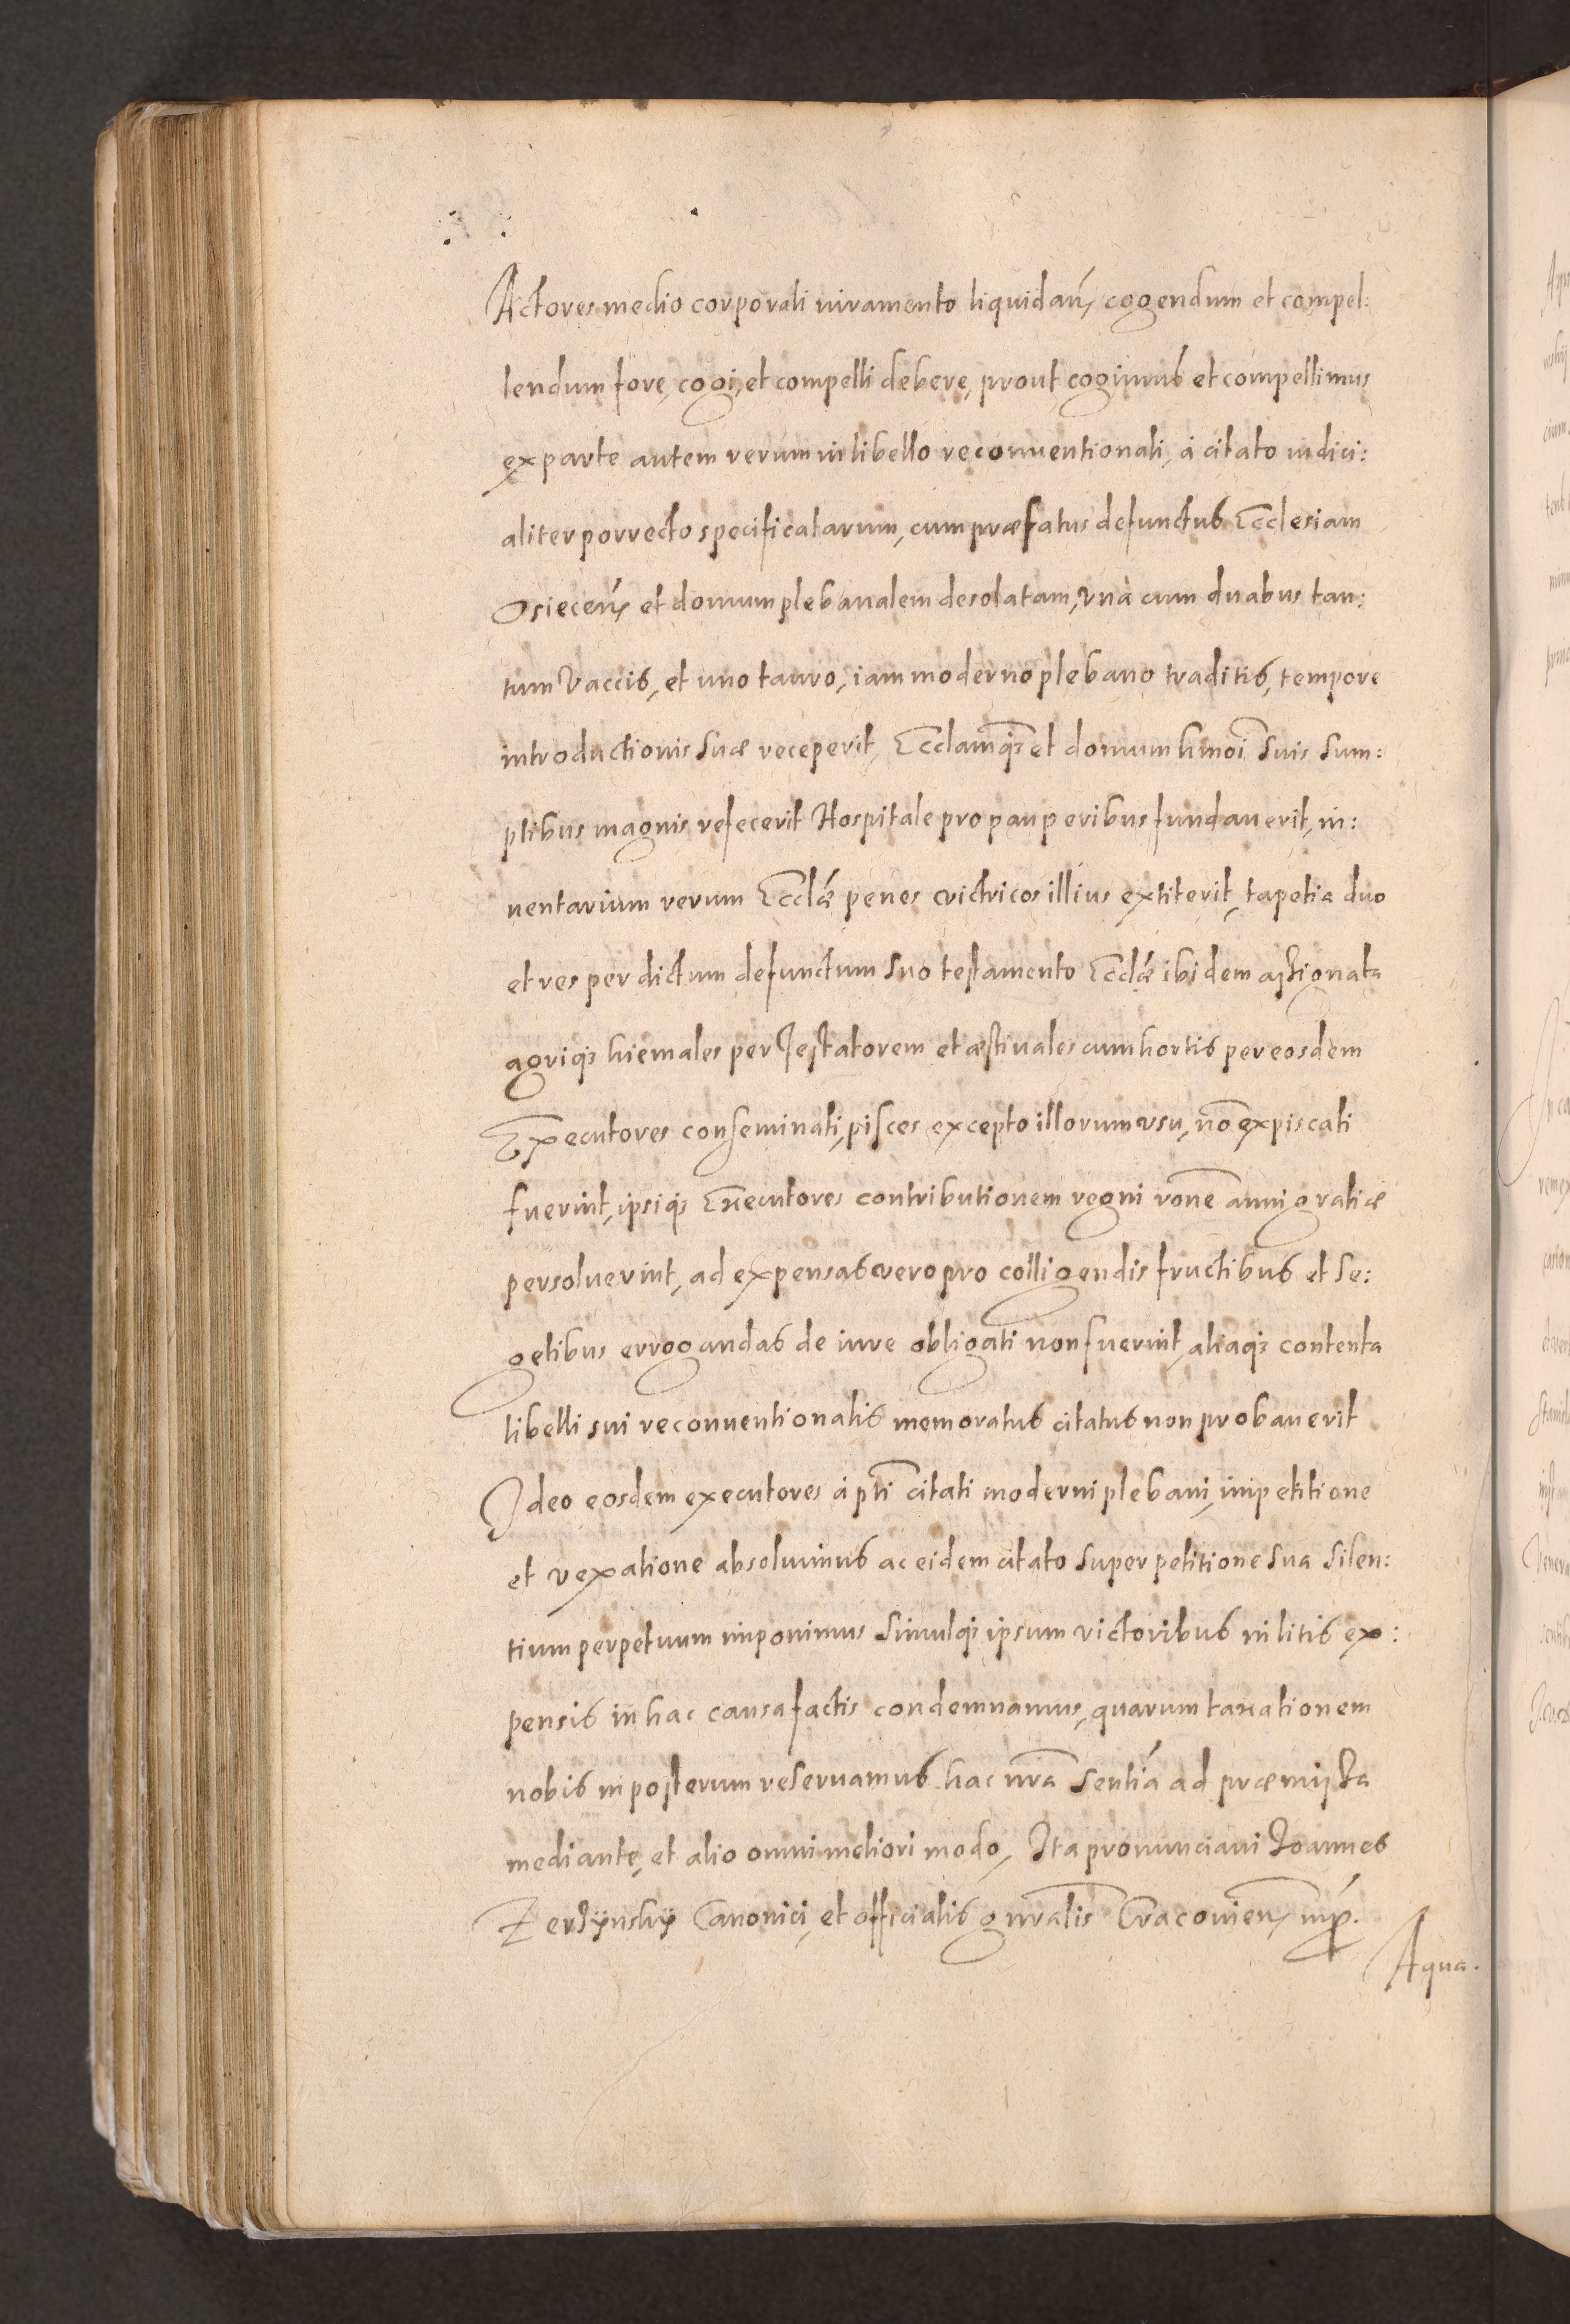 Actores medio corporali iuramento liquidan̄ cogendum et compel:
lendum fore, cogi, et compelli debere, prout cogimus et compellimus
ex parte autem rerum in libello reconuentionali, à citato iudici:
aliter porrecto specificatarum, cum præfatus defunctus Ecclesiam
Osiecen̄ et domum plebanalem desolatam, vnà cum duabus tan:
tum vaccis, et uno tauro, iam moderno plebano traditis, tempore
introductionis suæ receperit, Eccłamq3 et domum hmōi suis sum:
ptibus magnis refecerit Hospitale pro pauperibus fundauerit, in:
uentarium rerum Eccłæ penes victricos illius extiterit, tapetia duo
et res per dictum defunctum suo testamento Eccłæ ibidem assignata
agriq3 hiemales per Testatorem et æstiuales cum hortis per eosdem
Executores conseminati, pisces excepto illorum vsu, nō expiscati
fuerint, ipsiq3 Executores contributionem regni rōne anni gratiæ
persoluerint, ad expensas vero pro colligendis fructibus et se:
getibus errogandas de iure obligati non fuerint, aliaq3 contenta
libelli sui reconuentionalis memoratus citatus non probauerit
Ideo eosdem executores à pti citati moderni plebani, impetitione
et vexatione absoluimus ac eidem citato super petitione sua silen:
tium perpetuum imponimus simulq3 ipsum victoribus in litis ex:
pensis in hac causa factis condemnamus, quarum taxationem
nobis in posterum reseruamus hac nrā sentiā ad præmissa
mediante, et alio omni meliori modo, Ita pronunciaui Joannes
Zerzÿnskÿ Canonici, et officialis gnralis Cracouien̄ mp.
Aqua.